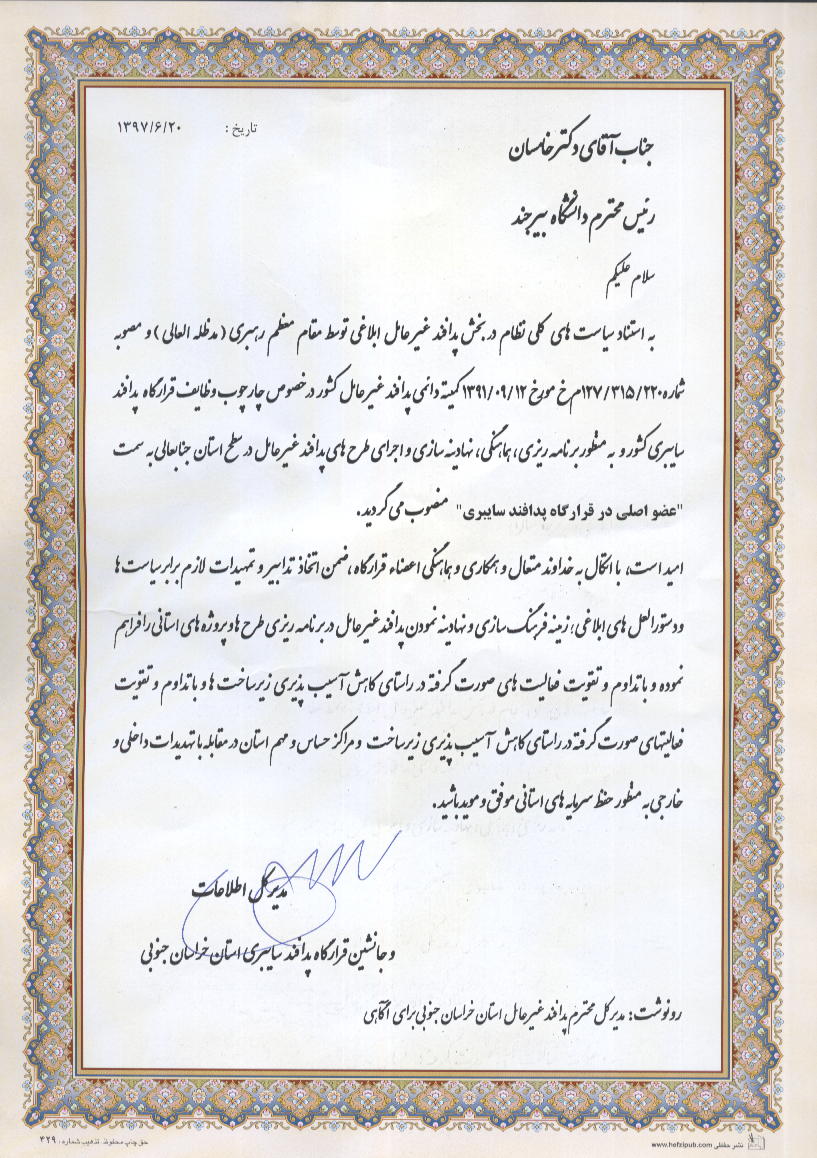 تاریخ : ۱۳۹۷/۶/۲۰
جناب آقای دکتر خامسان
رئیس محترم دانشگاه بیرجند
سلام علیکم
به استناد سیاست های کلی نظام در بخش پدافند غیرعامل ابلاغی توسط مقام معظم رهبری (مدظله العالی) و مصوبه
شماره ۱۲۷/۳۱۵/۲۲۰م خ مورخ ۱۳۹۱/۰۹/۱۲ کمیته دائمی پدافند غیرعامل کشور در خصوص چارچوب وظایف قرارگاه پدافند
سایبری کشور و به منظور برنامه ریزی، هماهنگی، نهادینه سازی و اجرای طرح های پدافند غیرعامل در سطح استان جنابعالی به سمت
"عضو اصلی در قرارگاه پدافند سایبری" منصوب می گردید.
امید است، با اتکال به خداوند متعال و همکاری و هماهنگی اعضاء قرارگاه، ضمن اتخاذ تدابیر و تمهیدات لازم برابر سیاست ها
و دستورالعمل های ابلاغی؛ زمینه فرهنگ سازی و نهادینه نمودن پدافند غیرعامل در برنامه ریزی طرح ها و پروژه های استانی را فراهم
نموده و با تداوم و تقویت فعالیت های صورت گرفته در راستای کاهش آسیب پذیری زیرساخت ها و با تداوم و تقویت
فعالیتهای صورت گرفته در راستای کاهش آسیب پذیری زیرساخت و مراکز حساس و مهم استان در مقابله با تهدیدات داخلی و
خارجی به منظور حفظ سرمایه های استانی موفق و موید باشید.
مدیرکل اطلاعات
و جانشین قرارگاه پدافند سایبری استان خراسان جنوبی
رونوشت: مدیرکل محترم پدافند غیرعامل استان خراسان جنوبی برای آگاهی
نشر حفظی www.hefzipub.com
حق چاپ محفوظ. تذهیب شماره: ۴۲۹